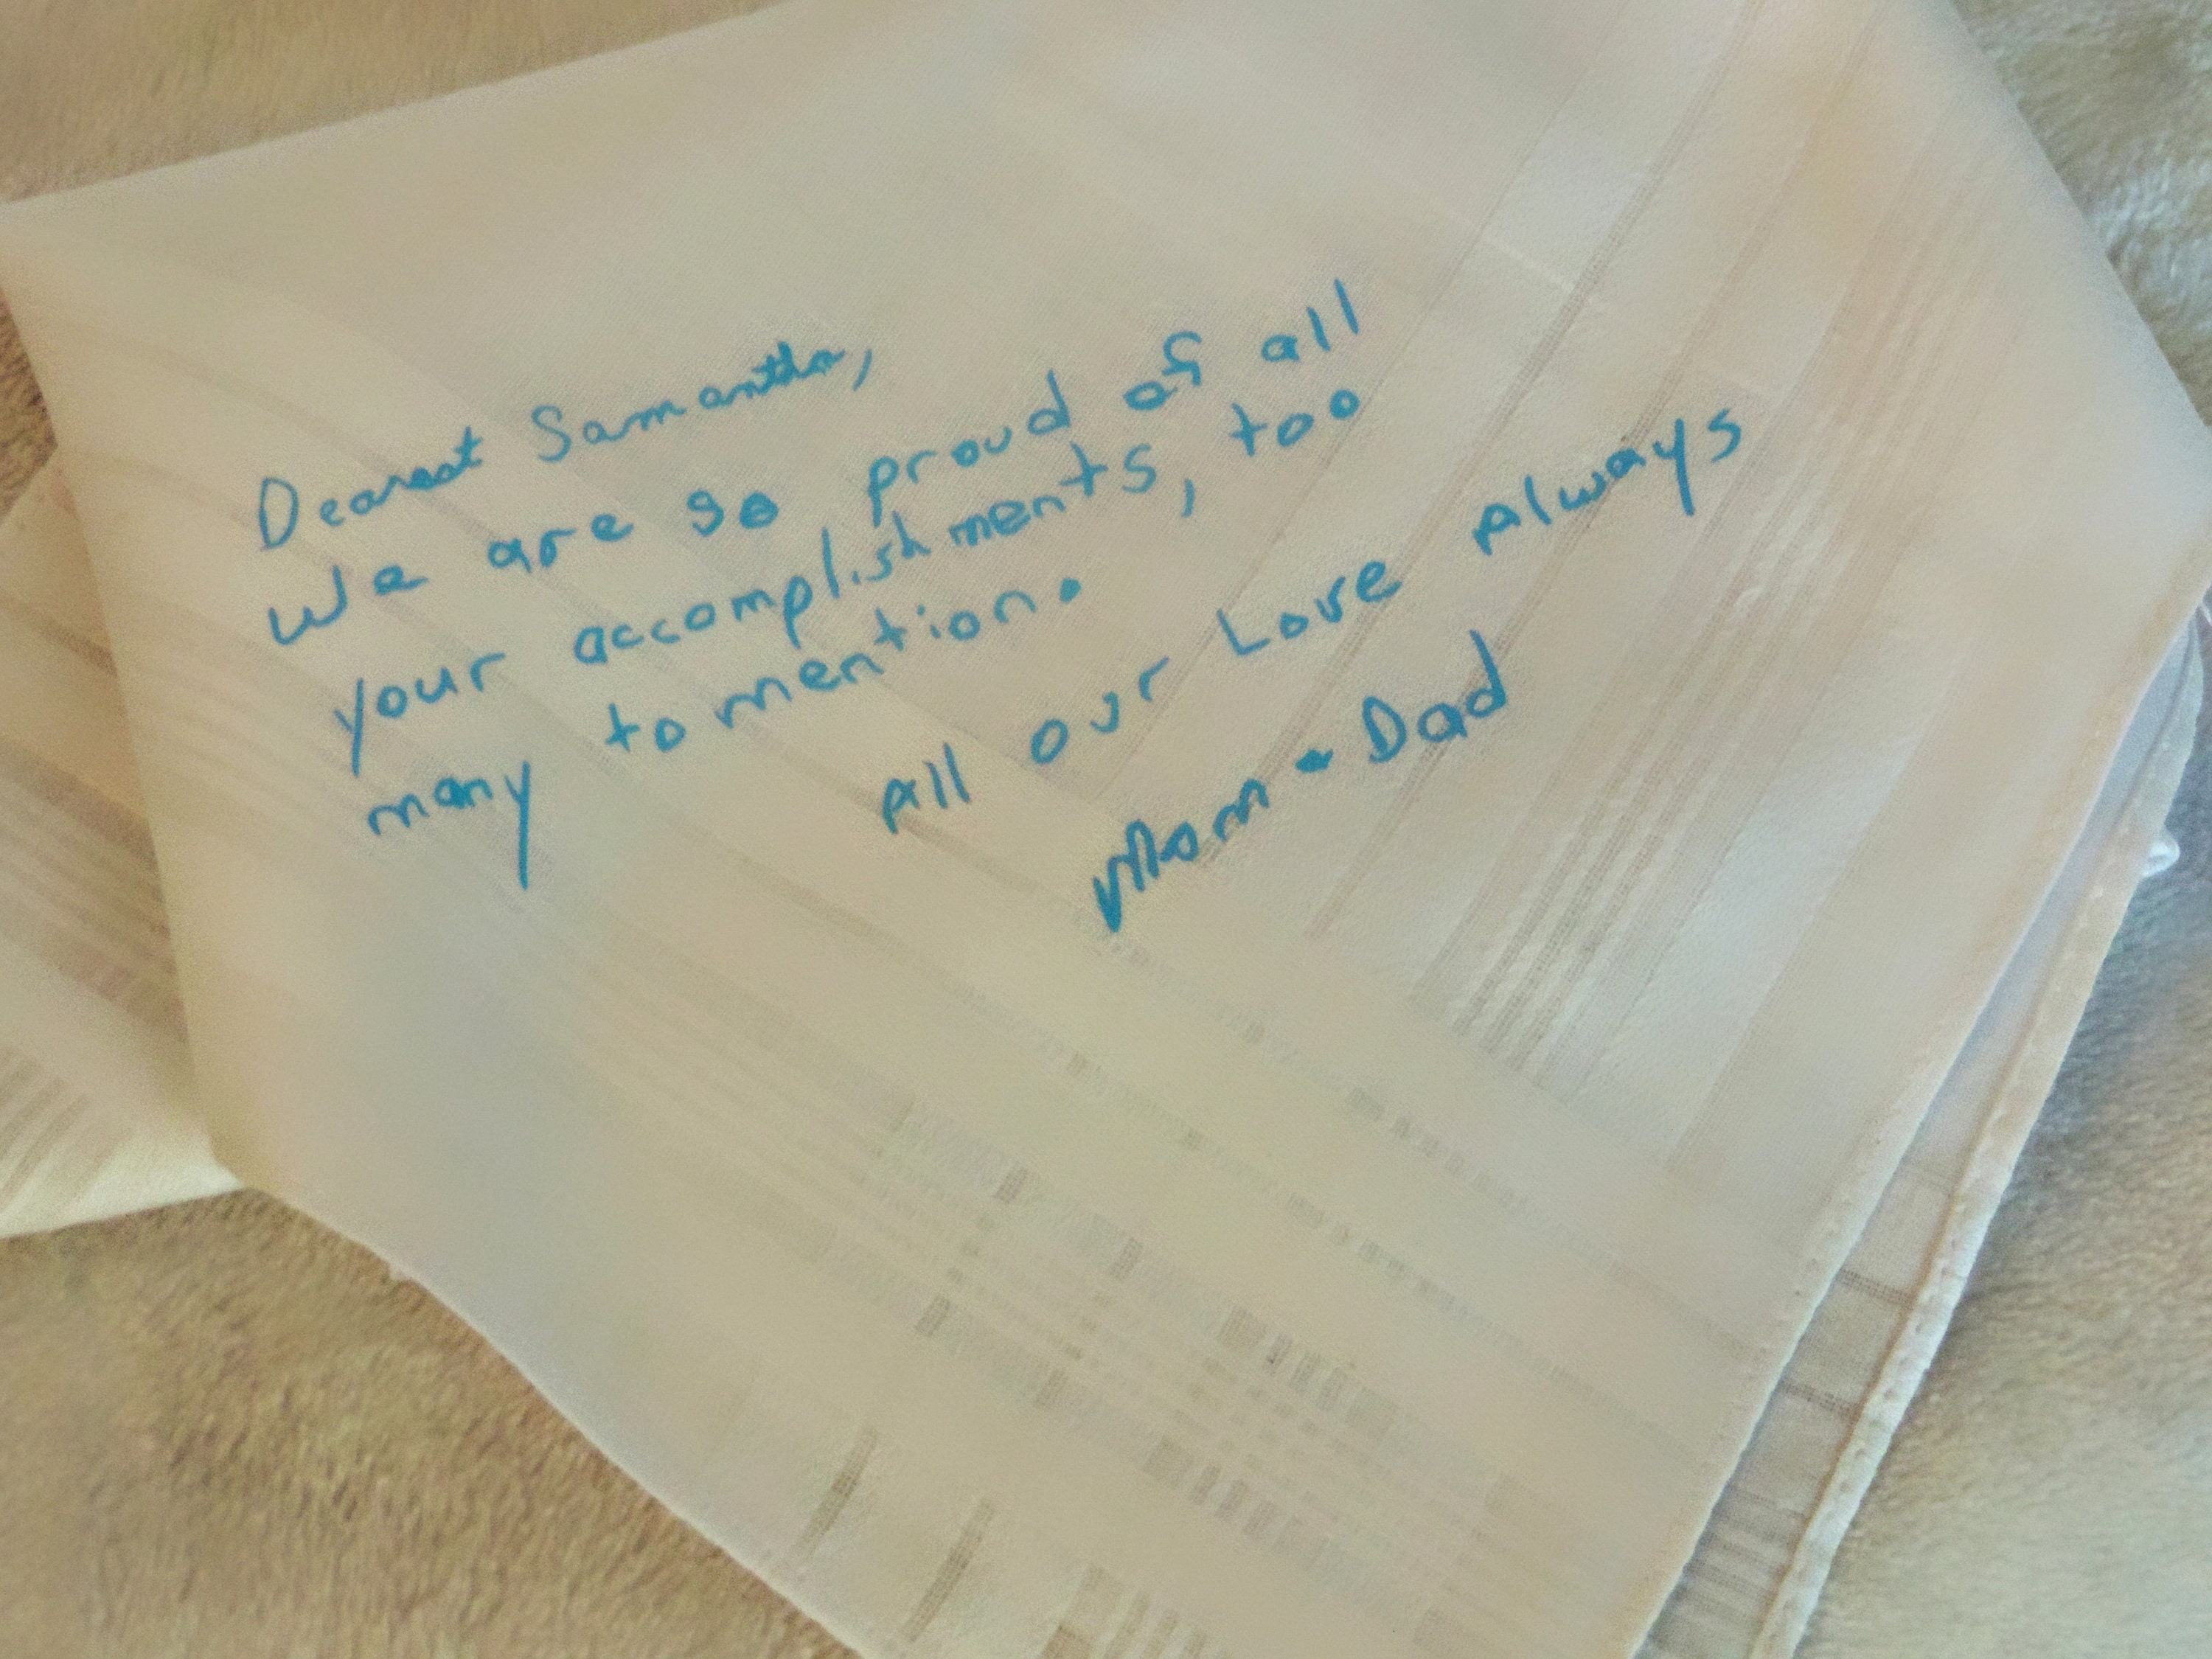 Dearest Samantha,
We are so proud of all
your accomplishments, too
many to mention.
All our Love Always
Mom - Dad